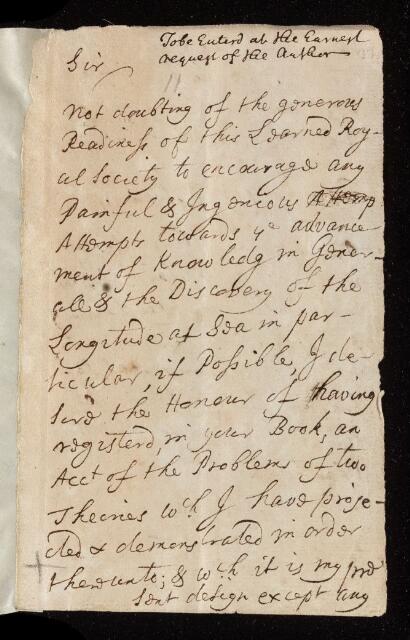 To be Enterd at the Earnest
request of the Author
Sir
Not doubting of the generous
Readiness of this Learned Roy-
al Society to encourage any
Painful & Ingeneous Attemp
Attempts towards ye advance-
ment of Knowledg in Gener-
all & the Discovery of the
Longitude at Sea in par-
ticular, if Possible, I de-
sire the Honour of having
registerd, in your Book, an
Acct of the Problems of two
Theories wch I have proje-
cted & demonstrated in order
thereunto; & wch it is my pre
sent design except any